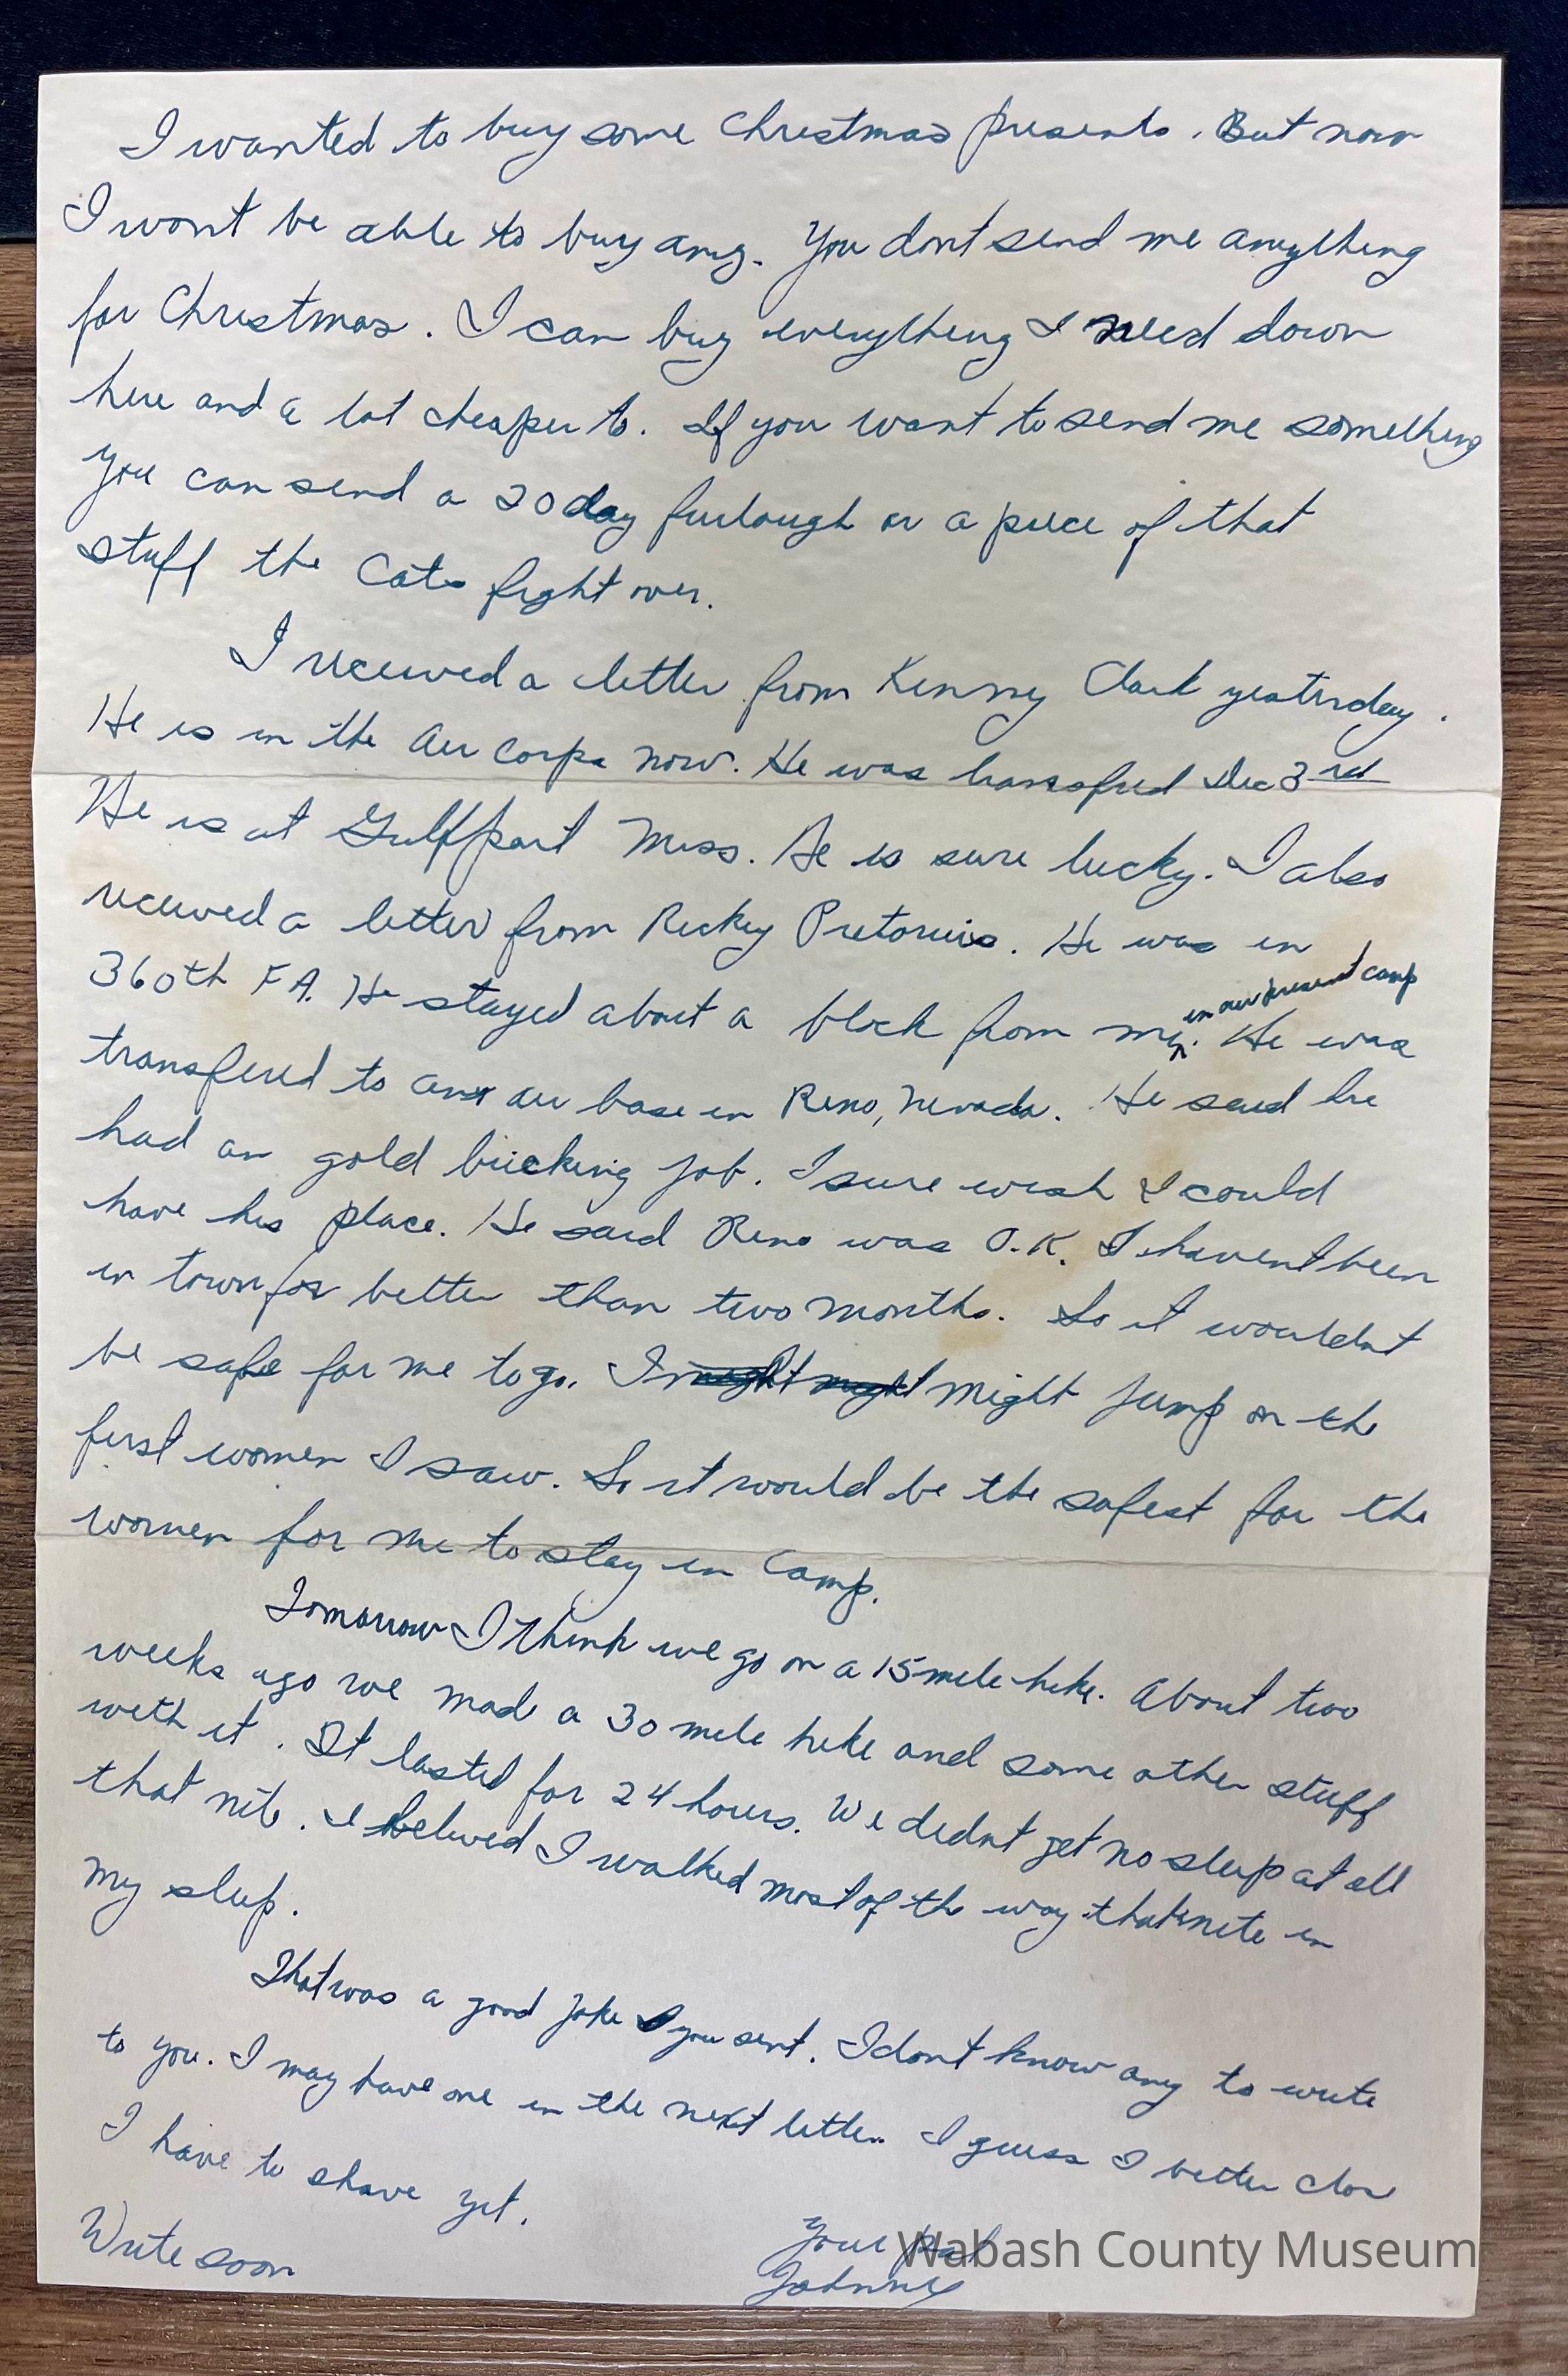 I wanted to buy some Christmas presents. But now
I wont be able to buy any. You dont send me anything
for Christmas. I can buy everything I need down
here and a lot cheaper to. If you want to send me something
you can send a 20 day furlough or a piece of that
stuff the Cats fight over.
I received a letter from Kenny Clark yesterday.
He is in the Air Corps now. He was transfred Dec 3rd
He is at Gulfport Miss. He is sure lucky. I also
received a letter from Rickey Pretorius. He was in
360th F A. He stayed about a block from me in our present camp. He was
transfered to an air base in Reno, Nevada. He said he
had an gold bricking job. I sure wish I could
have his place. He said Reno was O.K. I havent been
in town for better than two months. So it wouldnt
be safe for me to go. I might might might jump on the
first women I saw. So it would be the safest for the
women for me to stay in Camp.
Tomorrow I think we go on a 15 mile hike. About two
weeks ago we made a 30 mile hike and some other stuff
with it. It lasted for 24 hours. We didnt get no sleep at all
that nite. I belived I walked most of the way that nite in
my sleep.
That was a good joke you sent. I dont know any to write
to you. I may have one in the next letter. I guess I better close
I have to shave yet.
Write soon
Your Pal
Johnny
Wabash County Museum